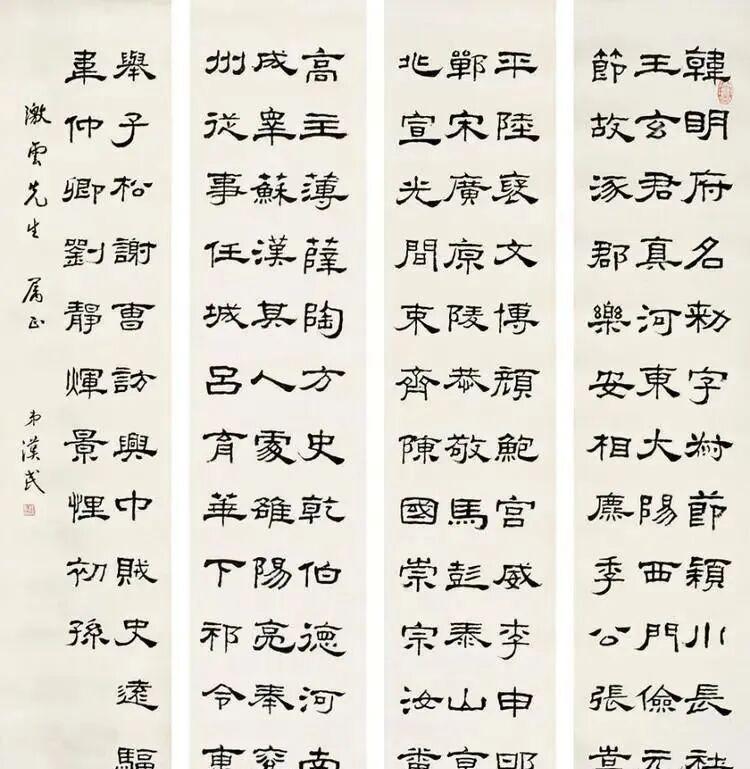 韓明府名勑字叔節穎川長社
王玄君真河東大陽西門儉元
節故涿郡樂安相麃季公張嵩
平陸褒文博顏鮑宮威李申邯
鄲宋廣原陵恭敬馬彭泰山
北宣光間東齊陳國崇宗汝番
高主薄薛陶方史乾伯德河南
成睾蘇漢其人處雒陽亮奉兗
州從事任城呂育華下祁令東
舉子松謝曹訪興中賊史遠驅
韋仲卿劉靜煇景悝初孫
澂雲先生 屬正 弟漢民